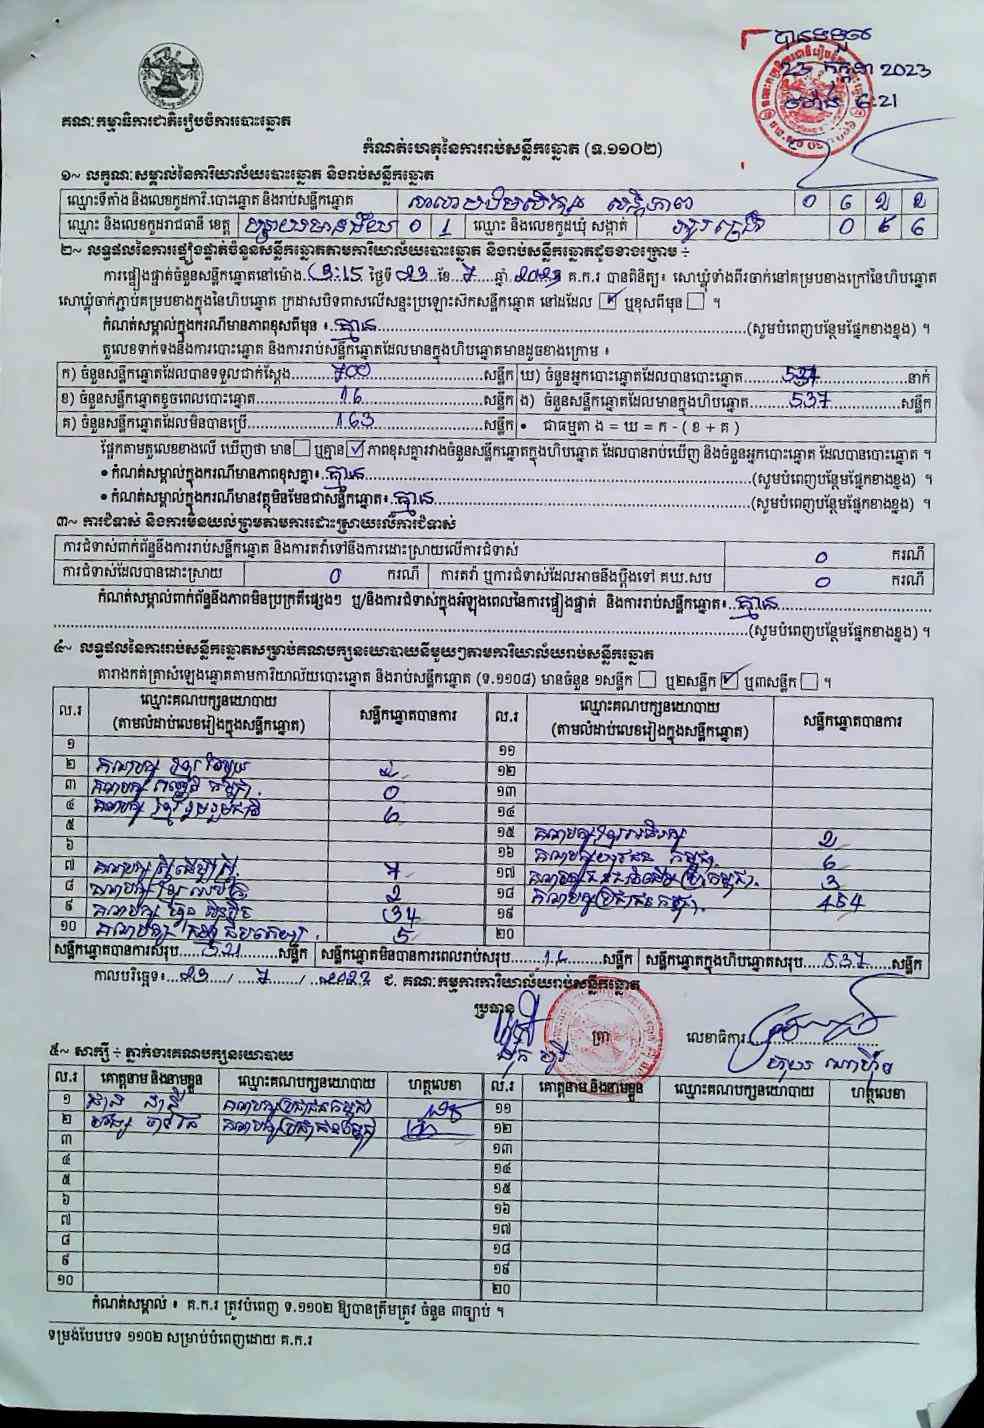 បានទទួល
23 កក្កដា 2023
ម៉ោង 6:21
គណៈកម្មាធិការជាតិរៀបចំការបោះឆ្នោត
កំណត់ហេតុនៃការរាប់សន្លឹកឆ្នោត (ទ.១១០២)
១~ លក្ខណៈសម្គាល់នៃការិយាល័យបោះឆ្នោត និងរាប់សន្លឹកឆ្នោត
ឈ្មោះទីតាំង និងលេខកូដការិ.បោះឆ្នោត និងរាប់សន្លឹកឆ្នោត សន្តិភាព 0 6 2 2
ឈ្មោះ និងលេខកូដរាជធានី ខេត្ត បន្ទាយមានជ័យ 0 1 ឈ្មោះ និងលេខកូដឃុំ សង្កាត់ 0 6 6
២~ លទ្ធផលនៃការផ្ទៀងផ្ទាត់ចំនួនសន្លឹកឆ្នោតតាមការិយាល័យបោះឆ្នោត និងរាប់សន្លឹកឆ្នោតដូចខាងក្រោម ÷
ការផ្ទៀងផ្ទាត់ចំនួនសន្លឹកឆ្នោតនៅម៉ោង 3:15 ថ្ងៃទី 23 ខែ 7 ឆ្នាំ 2023 គ.ក.រ បានពិនិត្យ៖ សោឃ្លុំទាំងពីរចាក់នៅគម្របខាងក្រៅនៃហិបឆ្នោត
សោឃ្លុំចាក់ភ្ជាប់គម្របខាងក្នុងនៃហិបឆ្នោត ក្រដាសបិទពាសលើសន្ទះប្រឡោះសិកសន្លឹកឆ្នោត នៅដដែល ☑ ឬខុសពីមុន ☐ ។
កំណត់សម្គាល់ក្នុងករណីមានភាពខុសពីមុន ៖ គ្មាន (សូមបំពេញបន្ថែមផ្នែកខាងខ្នង) ។
តួលេខទាក់ទងនឹងការបោះឆ្នោត និងការរាប់សន្លឹកឆ្នោតដែលមានក្នុងហិបឆ្នោតមានដូចខាងក្រោម ៖
ក) ចំនួនសន្លឹកឆ្នោតដែលបានទទួលជាក់ស្តែង 700 សន្លឹក ឃ) ចំនួនអ្នកបោះឆ្នោតដែលបានបោះឆ្នោត 537 នាក់
ខ) ចំនួនសន្លឹកឆ្នោតខូចពេលបោះឆ្នោត សន្លឹក ង) ចំនួនសន្លឹកឆ្នោតដែលមានក្នុងហិបឆ្នោត 537 សន្លឹក
គ) ចំនួនសន្លឹកឆ្នោតដែលមិនបានប្រើ 163 សន្លឹក • ជាធម្មតា ង = ឃ = ក - ( ខ + គ )
ផ្អែកតាមតួលេខខាងលើ ឃើញថា មាន ☐ ឬគ្មាន ☑ ភាពខុសគ្នារវាងចំនួនសន្លឹកឆ្នោតក្នុងហិបឆ្នោត ដែលបានរាប់ឃើញ និងចំនួនអ្នកបោះឆ្នោត ដែលបានបោះឆ្នោត ។
• កំណត់សម្គាល់ក្នុងករណីមានភាពខុសគ្នា៖ គ្មាន (សូមបំពេញបន្ថែមផ្នែកខាងខ្នង) ។
• កំណត់សម្គាល់ក្នុងករណីមានវត្ថុមិនមែនជាសន្លឹកឆ្នោត៖ គ្មាន (សូមបំពេញបន្ថែមផ្នែកខាងខ្នង) ។
៣~ ការជំទាស់ និងការមិនយល់ព្រមតាមការដោះស្រាយលើការជំទាស់
ការជំទាស់ពាក់ព័ន្ធនឹងការរាប់សន្លឹកឆ្នោត និងការតវ៉ាទៅនឹងការដោះស្រាយលើការជំទាស់ 0 ករណី
ការជំទាស់ដែលបានដោះស្រាយ 0 ករណី ការតវ៉ា ឬការជំទាស់ដែលអាចនឹងប្តឹងទៅ គឃ.សប 0 ករណី
កំណត់សម្គាល់ពាក់ព័ន្ធនឹងភាពមិនប្រក្រតីផ្សេងៗ ឬ/និងការជំទាស់ក្នុងអំឡុងពេលនៃការផ្ទៀងផ្ទាត់ និងការរាប់សន្លឹកឆ្នោត៖ គ្មាន
(សូមបំពេញបន្ថែមផ្នែកខាងខ្នង) ។
៤~ លទ្ធផលនៃការរាប់សន្លឹកឆ្នោតសម្រាប់គណបក្សនយោបាយនីមួយៗតាមការិយាល័យរាប់សន្លឹកឆ្នោត
តារាងកត់ត្រាសំឡេងឆ្នោតតាមការិយាល័យបោះឆ្នោត និងរាប់សន្លឹកឆ្នោត (ទ.១១០៨) មានចំនួន ១សន្លឹក ☐ ឬ២សន្លឹក ☑ ឬ៣សន្លឹក ☐ ។
ល.រ ឈ្មោះគណបក្សនយោបាយ (តាមលំដាប់លេខរៀងក្នុងសន្លឹកឆ្នោត) សន្លឹកឆ្នោតបានការ ល.រ ឈ្មោះគណបក្សនយោបាយ (តាមលំដាប់លេខរៀងក្នុងសន្លឹកឆ្នោត) សន្លឹកឆ្នោតបានការ
១ ១១
២ គណបក្ស ខ្មែរ តែមួយ ១២
៣ គណបក្ស កម្ពុជា 0 ១៣
៤ គណបក្ស ខ្មែរ រួបរួមជាតិ 6 ១៤
៥ ១៥ គណបក្ស 2
៦ ១៦ គណបក្សយុវជន កម្ពុជា 6
៧ គណបក្ស ស្ត្រីដើម្បីស្ត្រី ១៧ គណបក្ស 3
៨ គណបក្ស ខ្មែរ 2 ១៨ គណបក្សប្រជាជនកម្ពុជា 454
៩ គណបក្ស ហ្វ៊ុនស៊ិនប៉ិច 34 ១៩
១០ គណបក្ស 5 ២០
សន្លឹកឆ្នោតបានការសរុប 521 សន្លឹក សន្លឹកឆ្នោតមិនបានការពេលរាប់សរុប សន្លឹក សន្លឹកឆ្នោតក្នុងហិបឆ្នោតសរុប 537 សន្លឹក
កាលបរិច្ឆេទ៖ 23 / 7 / 2023 ជ. គណៈកម្មការការិយាល័យរាប់សន្លឹកឆ្នោត
ប្រធាន
លេខាធិការ
៥~ សាក្សី ÷ ភ្នាក់ងារគណបក្សនយោបាយ
ល.រ គោត្តនាម និងនាមខ្លួន ឈ្មោះគណបក្សនយោបាយ ហត្ថលេខា ល.រ គោត្តនាម និងនាមខ្លួន ឈ្មោះគណបក្សនយោបាយ ហត្ថលេខា
១ គណបក្សប្រជាជនកម្ពុជា ១១
២ គណបក្សប្រជាជនកម្ពុជា ១២
៣ ១៣
៤ ១៤
៥ ១៥
៦ ១៦
៧ ១៧
៨ ១៨
៩ ១៩
១០ ២០
កំណត់សម្គាល់ ៖ គ.ក.រ ត្រូវបំពេញ ទ.១១០២ ឱ្យបានត្រឹមត្រូវ ចំនួន ៣ច្បាប់ ។
ទម្រង់បែបបទ ១១០២ សម្រាប់បំពេញដោយ គ.ក.រ